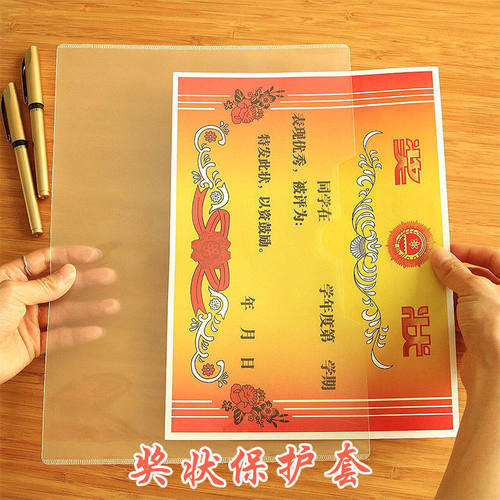 奖状
同学在 学年度第 学期
表现优秀，被评为：
特发此状，以资鼓励。
年 月 日
奖状保护套